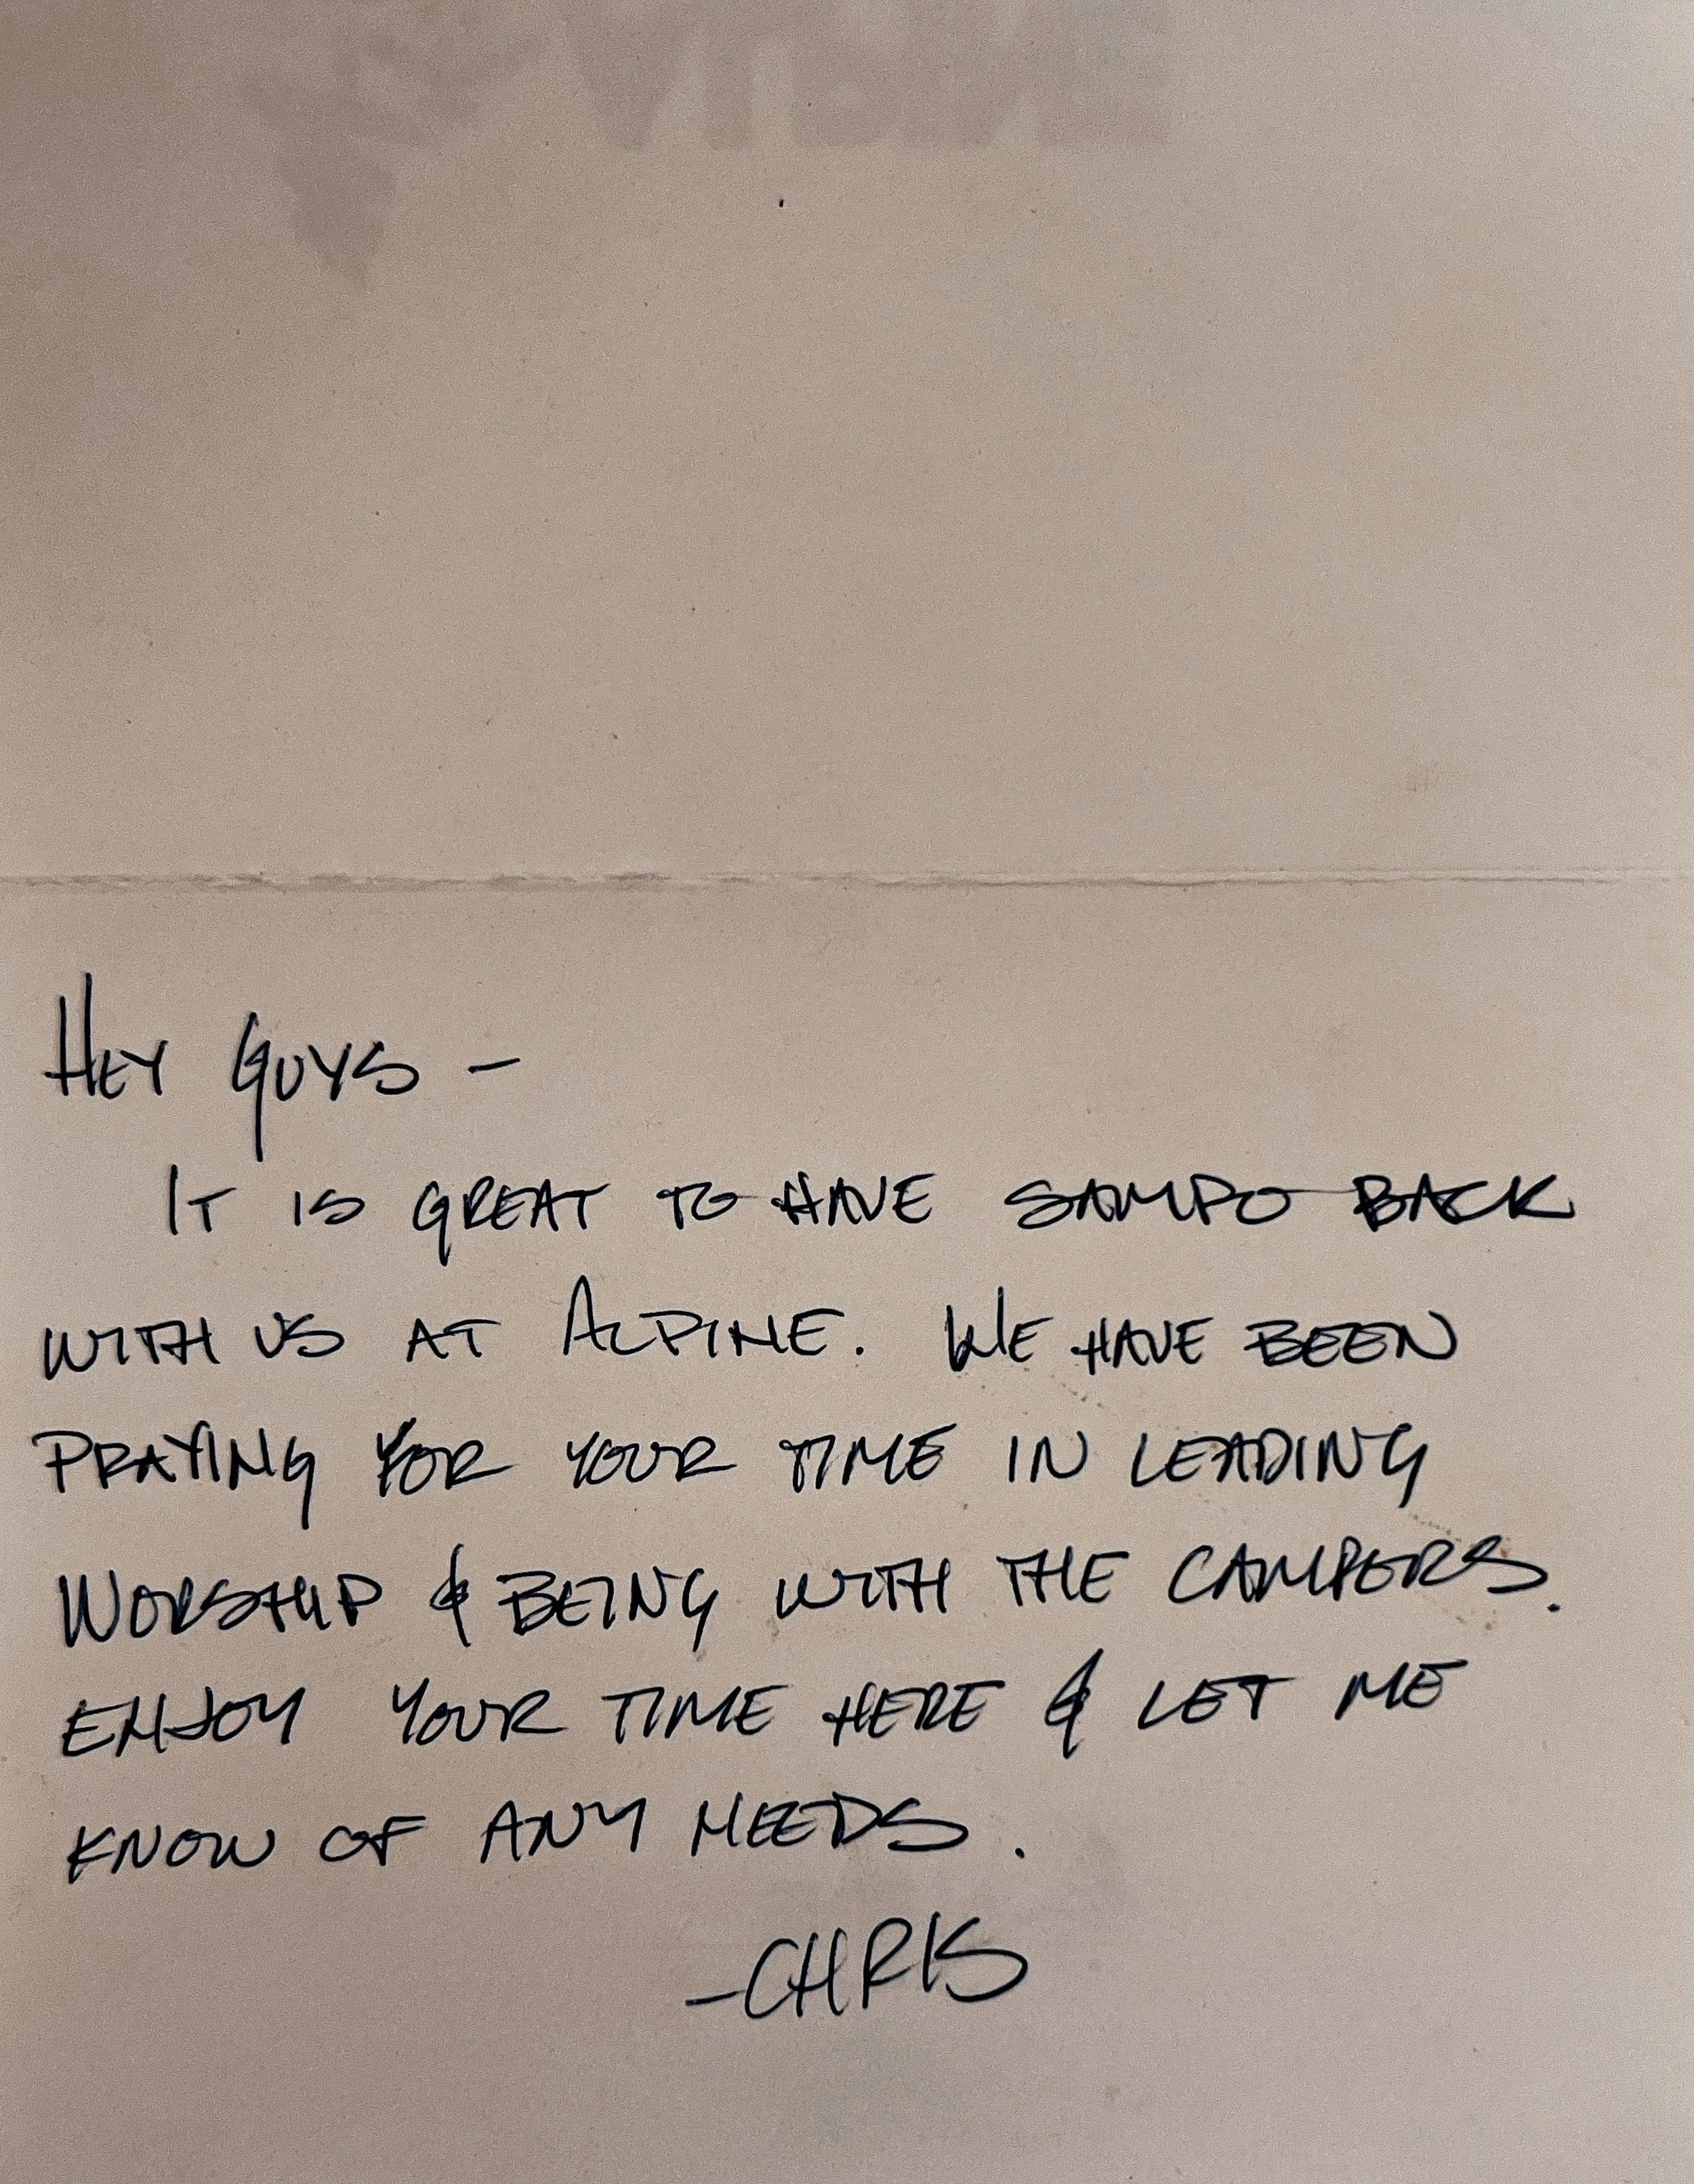 HEY GUYS -
IT IS GREAT TO HAVE SAMPO BACK
WITH US AT ALPINE. WE HAVE BEEN
PRAYING FOR YOUR TIME IN LEADING
WORSHIP & BEING WITH THE CAMPERS.
ENJOY YOUR TIME HERE & LET ME
KNOW OF ANY NEEDS.
-CHRIS